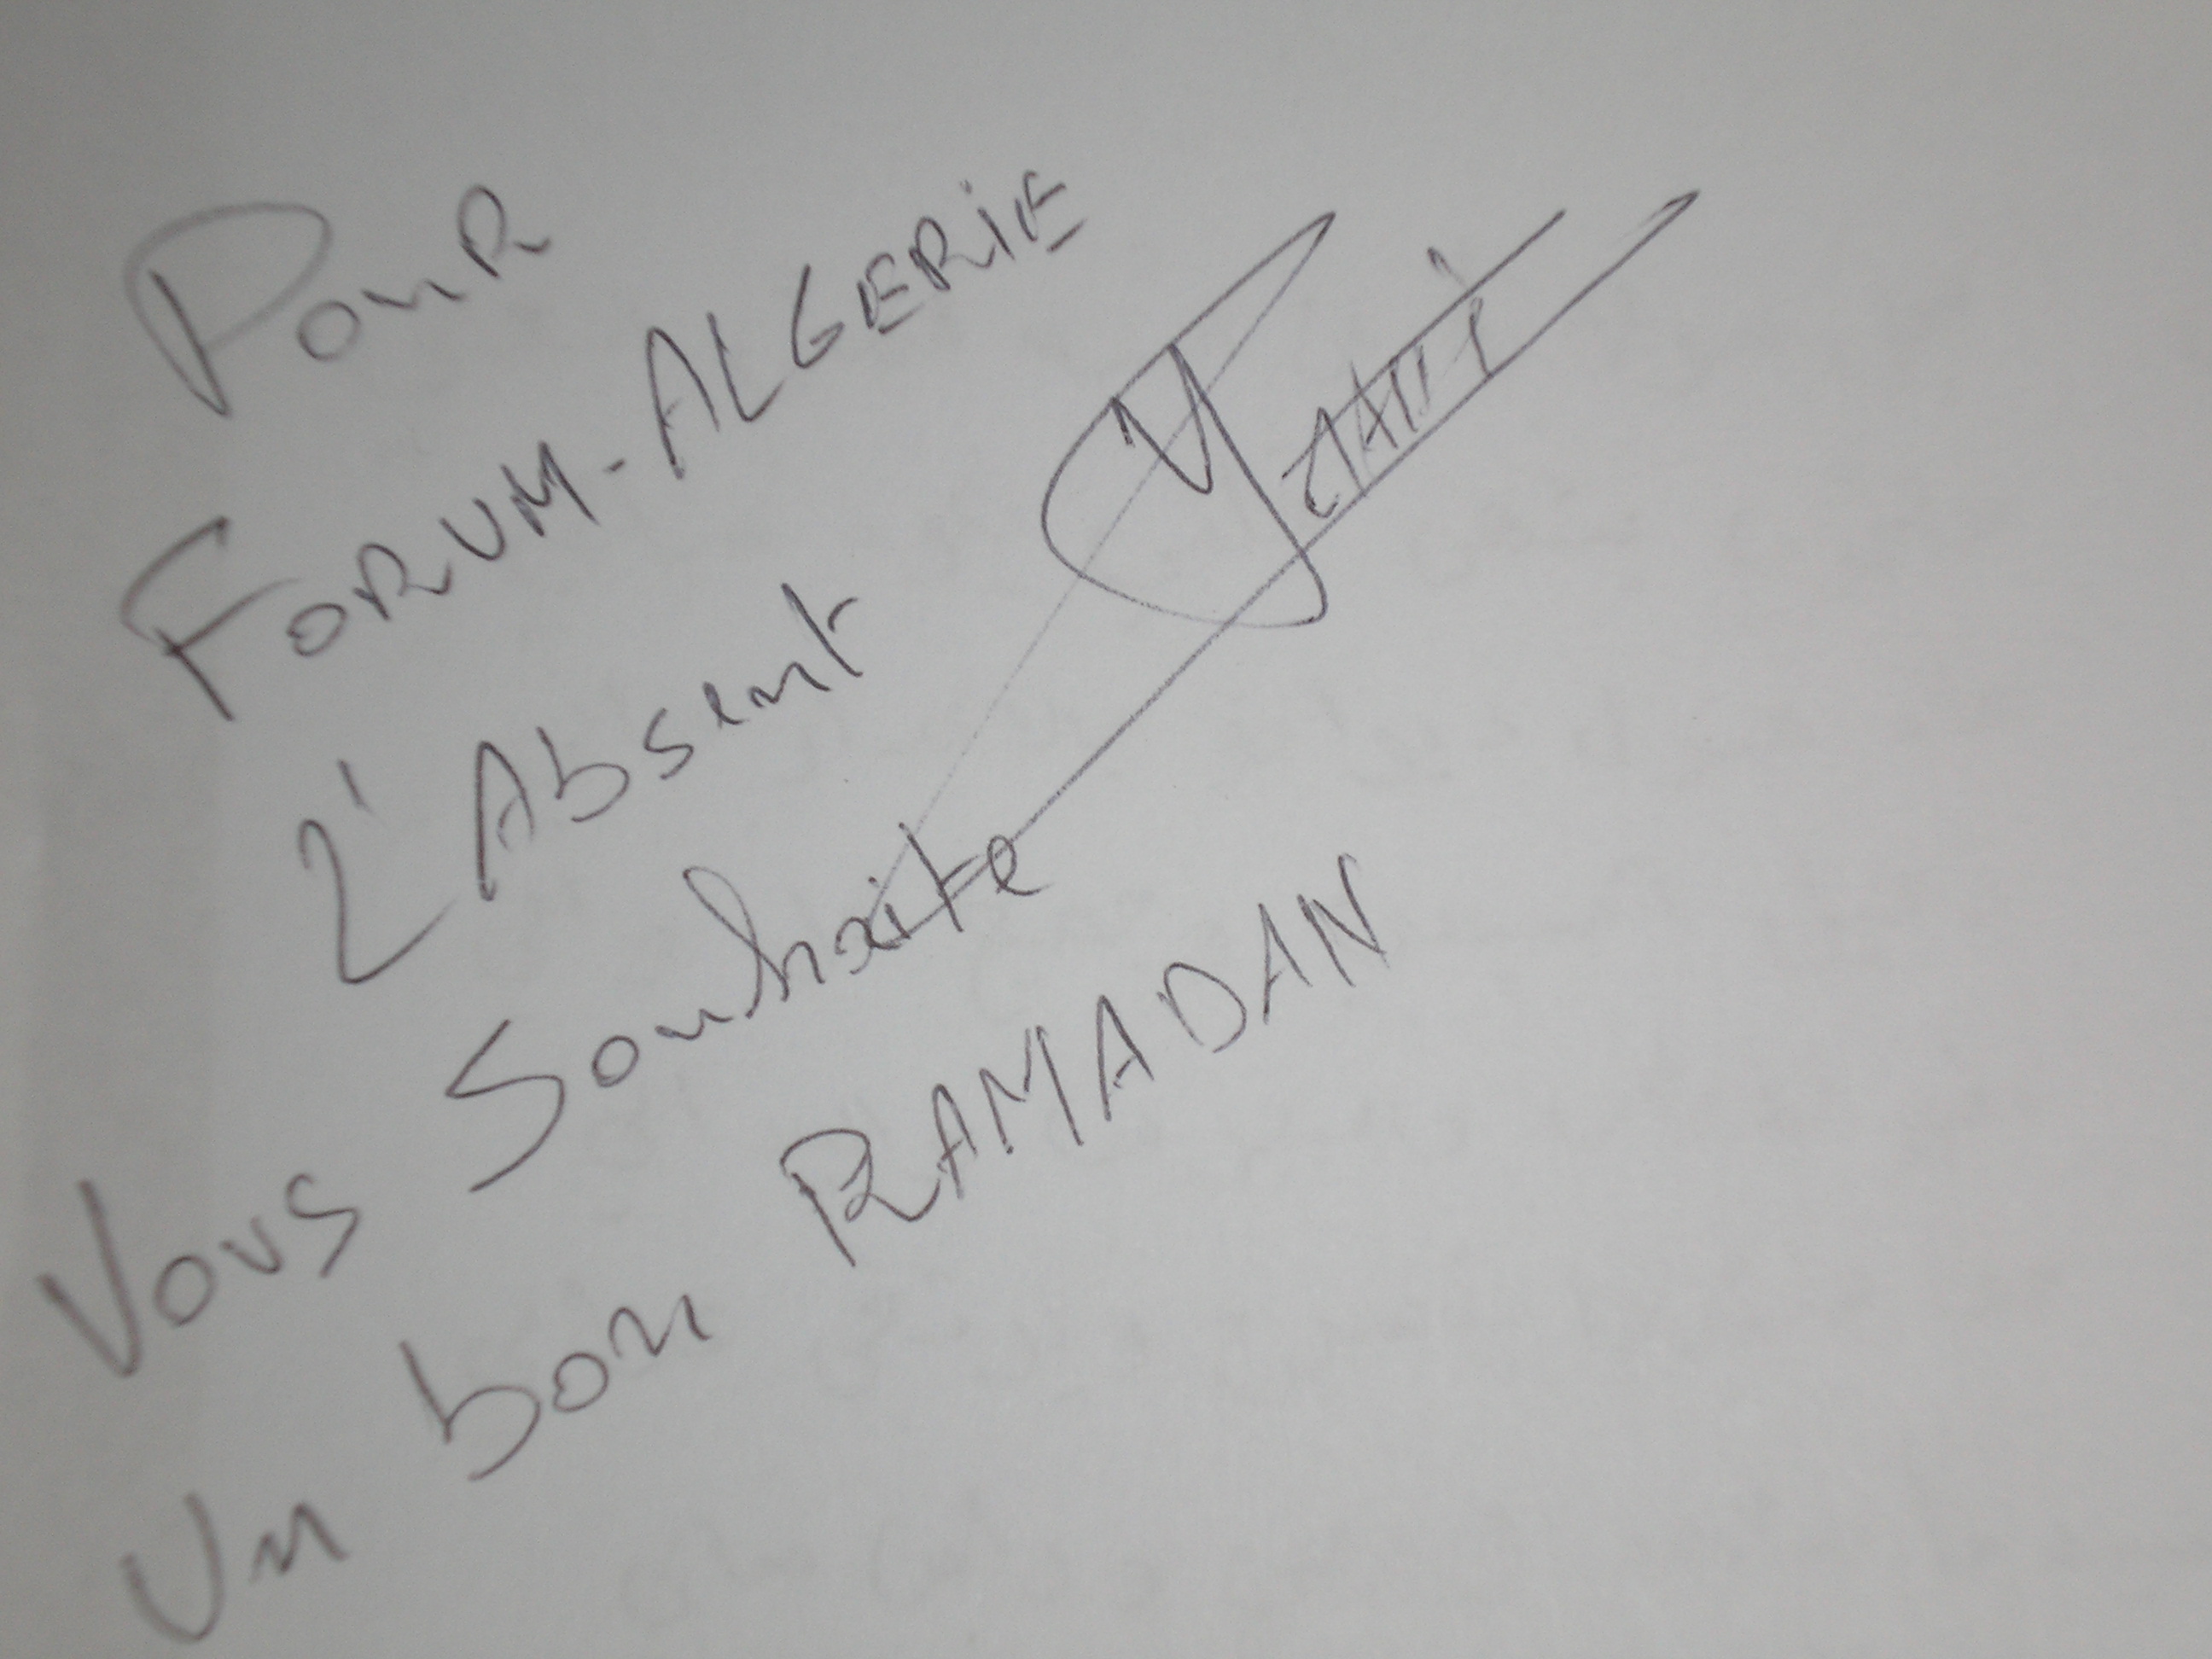 Pour
FORUM-ALGERIE
L'Absent
Vous Souhaite
Un bon RAMADAN